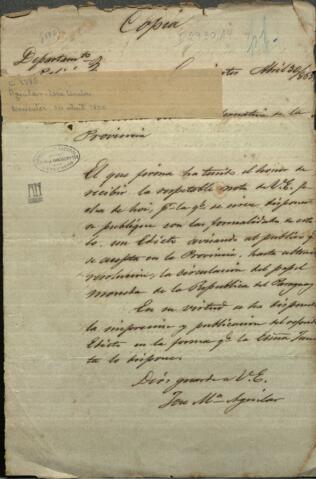 Copia
Departamto
Abril 30/865
Provincia
El que firma ha tenido el honor de
recibir la respetable nota de V.E. fe-
cha de hoi, pr. la qe. se sirve disponer
se publique con las formalidades de esti-
lo, un Edicto avisando al publico qe.
se acepta en la Provincia, hasta ulterior
resolucion, la circulacion del papel
moneda de la Republica del Paraguay
En su virtud se ha dispuesto
la impresion y publicacion del espresado
Edicto en la forma qe. la Exma Jun-
ta lo dispone.
Dios guarde a V.E.
Jose Ma. Aguilar